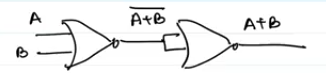 A
B
A+B̅
A+B